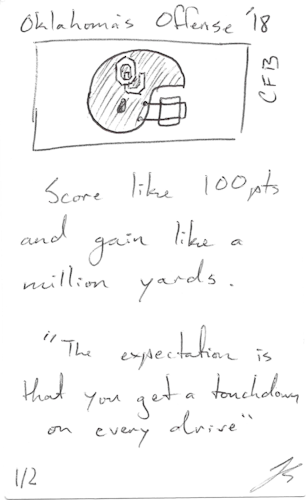 Oklahoma's Offense '18
CFB
OU
Score like 100pts
and gain like a
million yards.
"The expectation is
that you get a touchdown
on every drive"
1/2